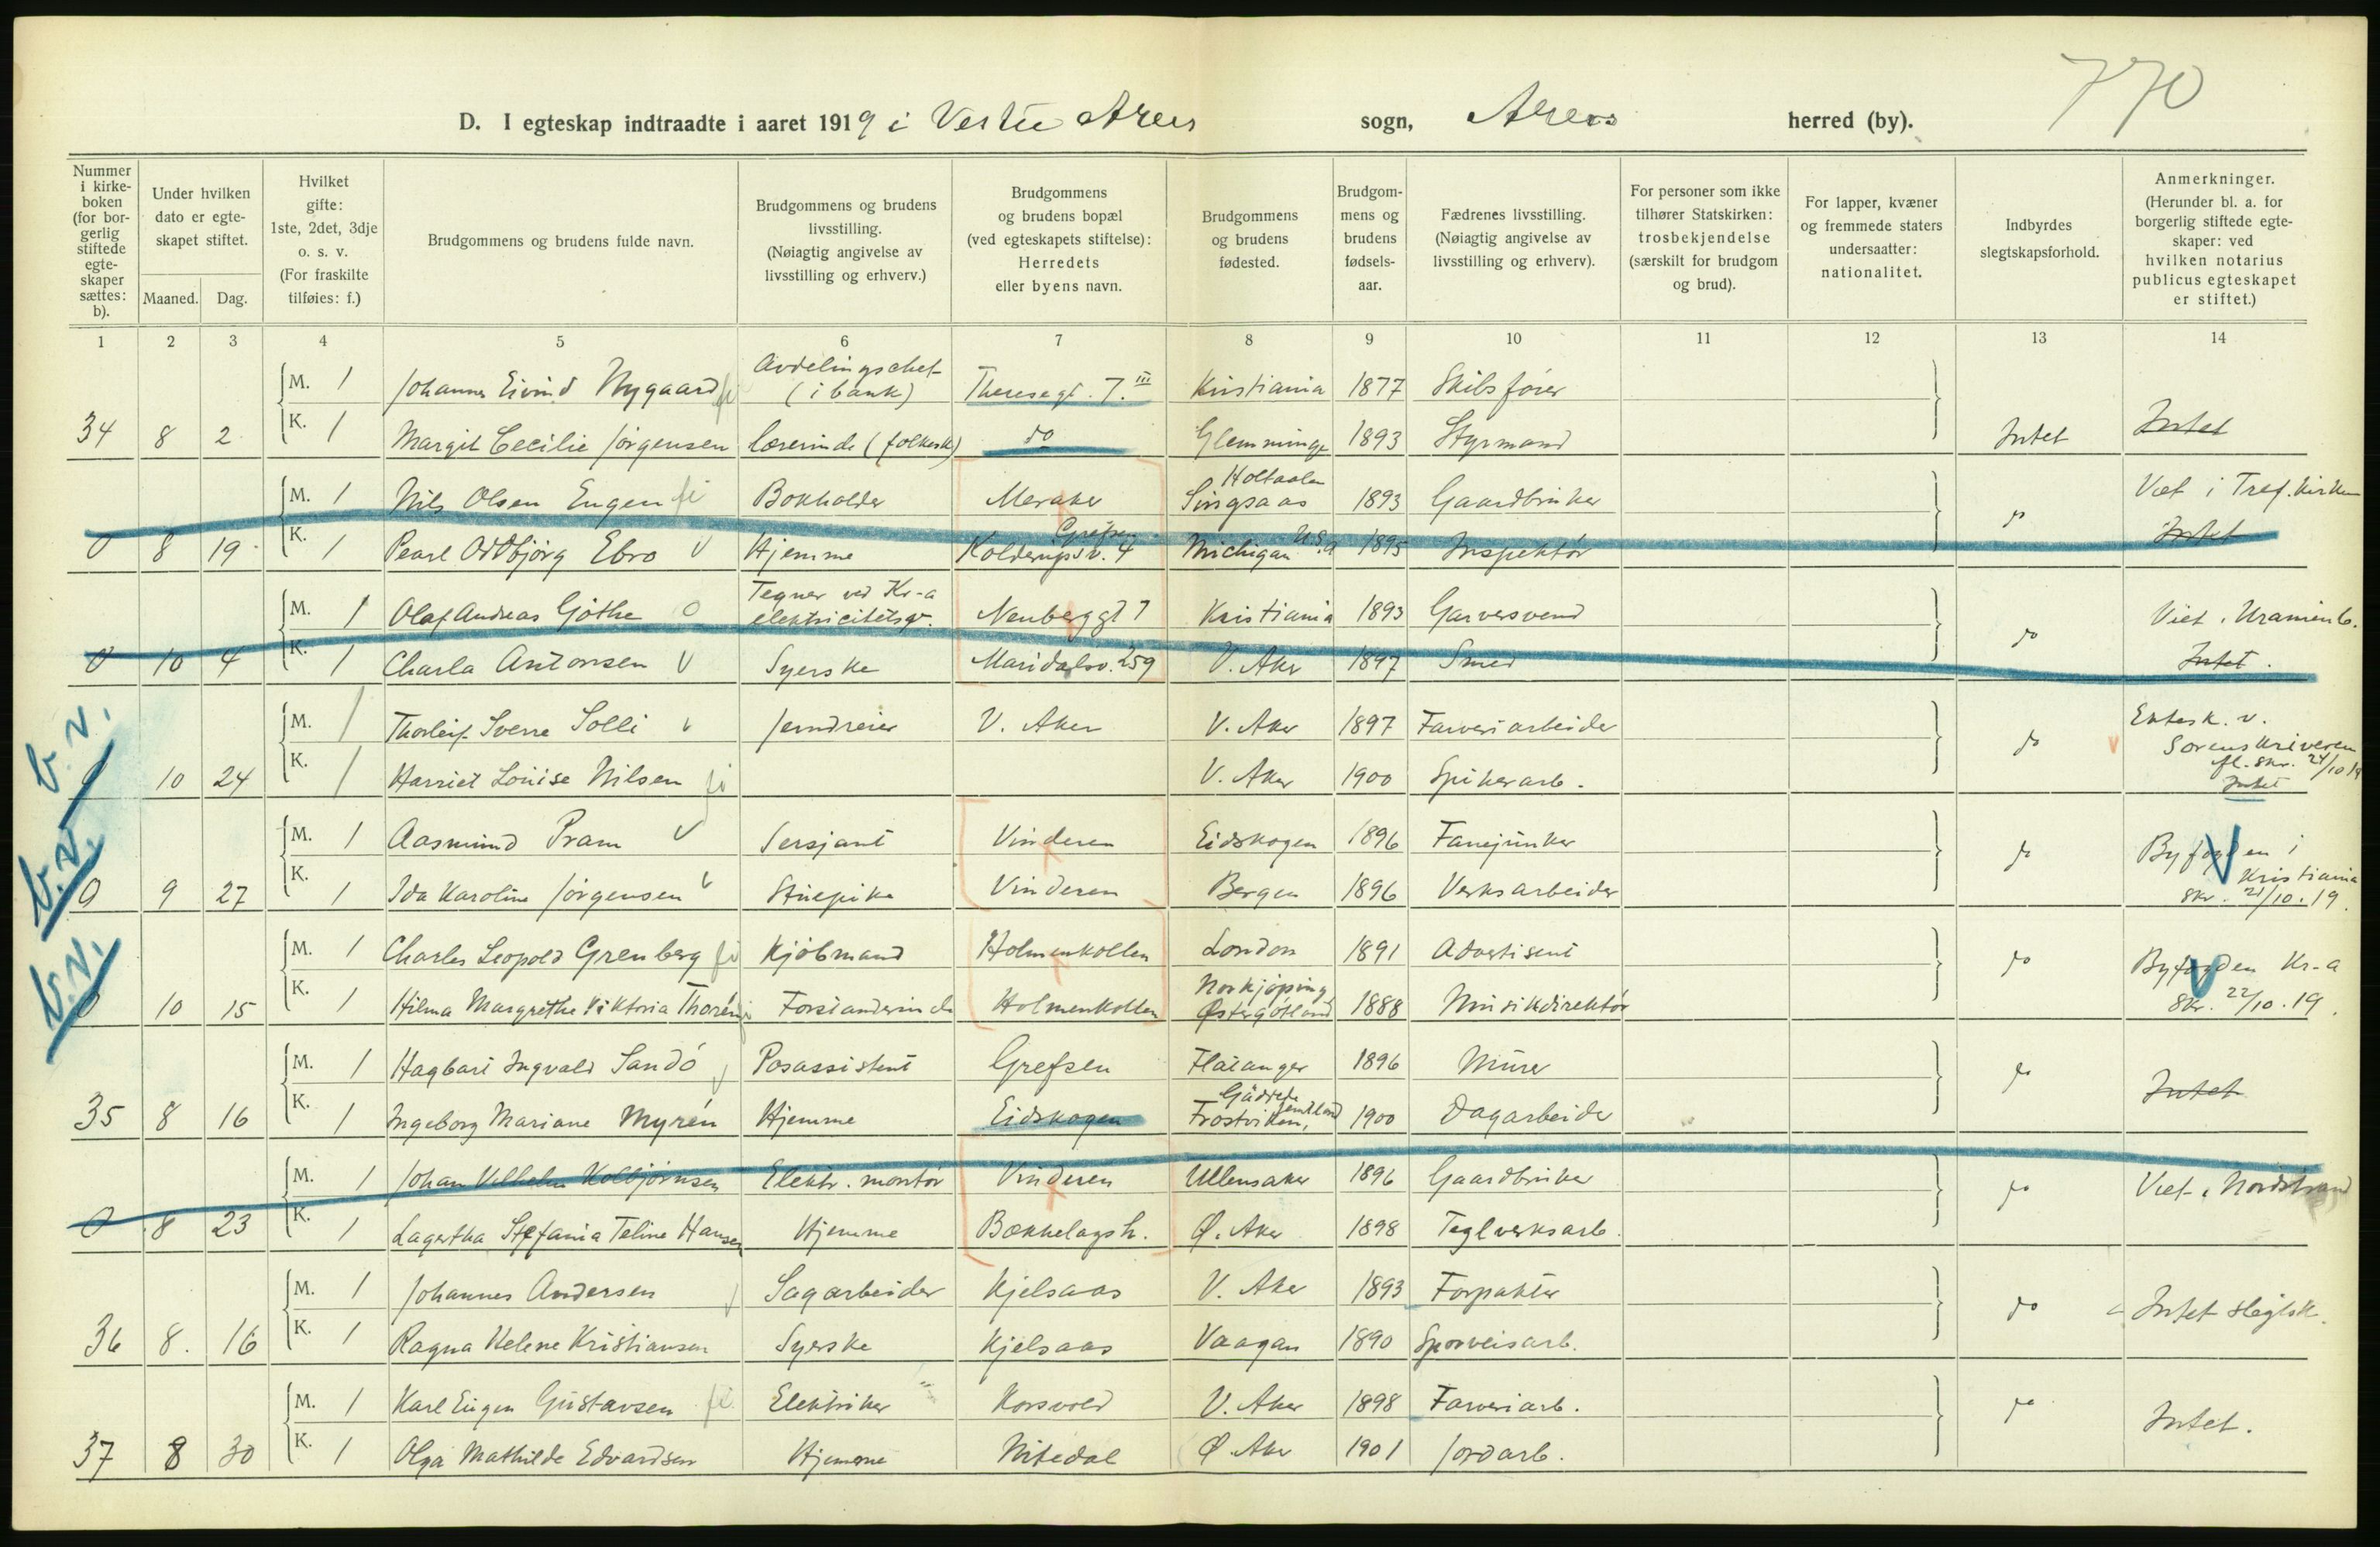 770
D. I egteskap indtraadte i aaret 1919 i Vestre Akers sogn, Akers herred (by).
Nummer i kirkeboken (for borgerlig stiftede egteskaper sættes: b).
Under hvilken dato er egteskapet stiftet.
Maaned. Dag.
Hvilket gifte: 1ste, 2det, 3dje o. s. v. (For fraskilte tilføies: f.)
Brudgommens og brudens fulde navn.
Brudgommens og brudens livsstilling. (Nøiagtig angivelse av livsstilling og erhverv.)
Brudgommens og brudens bopæl (ved egteskapets stiftelse): Herredets eller byens navn.
Brudgommens og brudens fødested.
Brudgommens og brudens fødselsaar.
Fædrenes livsstilling. (Nøiagtig angivelse av livsstilling og erhverv).
For personer som ikke tilhører Statskirken: trosbekjendelse (særskilt for brudgom og brud).
For lapper, kvæner og fremmede staters undersaatter: nationalitet.
Indbyrdes slegtskapsforhold.
Anmerkninger. (Herunder bl. a. for borgerlig stiftede egteskaper: ved hvilken notarius publicus egteskapet er stiftet.)
1 2 3 4 5 6 7 8 9 10 11 12 13 14
M. 1 Johannes Eivind Nygaard Avdelingschef (i bank) Theresegt. 7. III Kristiania 1877 Skibsfører
34 8 2 K. 1 Margit Cecilie Jörgensen lærerinde (folkesk) do Glemminge 1893 Styrmand Intet Intet
M. 1 Nils Olsen Eugen Bokholder Meraker Holtaalen Singsaas 1893 Gaardbruker Viet i Tref. kirken
0 8 19 K. 1 Pearl Oddbjörg Ebro V Hjemme Grefsen Kolderupsv. 4 Michigan U.S.A 1895 Inspektör do Intet
M. 1 Olaf Andreas Göthe O Tegner ved Kr-a elektricitetsv. Neuberggt 7 Kristiania 1893 Garversvend Viet i Uranienb.
0 10 4 K. 1 Charla Antonsen V Syerske Maridalsv. 259 V. Aker 1897 Smed do Intet.
b.v.
M. 1 Thorleif Sverre Solli v Jerndreier V. Aker V. Aker 1897 Farveriarbeider Ektesk. v. Sorenskriveren
10 24 K. 1 Harriet Louise Nilsen V. Aker 1900 Spikerarb. do fl. skr. 24/10 19 Intet
b.v.
M. 1 Aasmund Pram V Sersjant Vinderen Eidskogen 1896 Fanejunker Byfogden i Kristiania
0 9 27 K. 1 Ida Karoline Jörgensen v Stuepike Vinderen Bergen 1896 Verksarbeider do skr. 21/10.19.
b.v.
M. 1 Charles Leopold Grenberg Kjöbmand Holmenkollen London 1891 Advertisent Byfogden Kr-a
0 10 15 K. 1 Hilma Margrethe Viktoria Thorén Forstanderinde Holmenkollen Norkjöping Østergötland 1888 Musikdirektör do skr. 22/10.19.
M. 1 Hagbart Ingvald Sandö Posassistent Grefsen Flatanger 1896 Murer
35 8 16 K. 1 Ingeborg Mariane Myrén Hjemme Eidskogen Gäddede Frostviken, Jemtland 1900 Dagarbeider do Intet
M. 1 Johan Vilhelm Kolbjörnsen Elektr. montör Vinderen Ullensaker 1896 Gaardbruker Viet i Nordstrand
0 8 23 K. 1 Lagertha Stefania Teline Hansen Hjemme Bækkelagsh. Ø. Aker 1898 Teglverksarb. do
M. 1 Johannes Andersen Sagarbeider Kjelsaas V. Aker 1893 Forpakter
36 8. 16 K. 1 Ragna Helene Kristiansen Syerske Kjelsaas Vaagan 1890 Sporveisarb. do Intet slegtsk.
M. 1 Karl Eugen Gustavsen Elektriker Korsvold V. Aker 1898 Farveriarb.
37 8 30 K. 1 Olga Mathilde Edvardsen Hjemme Nitedal Ø Aker 1901 Jordarb. do Intet.